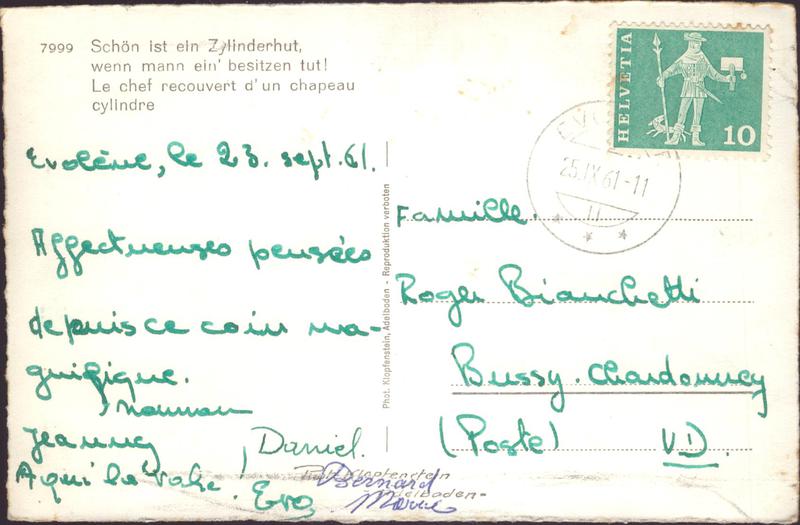 7999 Schön ist ein Zylinderhut,
wenn mann ein' besitzen tut!
Le chef recouvert d'un chapeau
cylindre
HELVETIA
10
25.IX.61-11
Evolène, le 23. sept. 61.
Affectueuses pensées
depuis ce coin ma-
gnifique.
Maman
Daniel.
A qui la vache!
Eva
Bernard
Phot. Klopfenstein
Adelboden-
Phot. Klopfenstein, Adelboden - Reproduktion verboten
Famille.
Roger Bianchetti
Bussy. Chardonney
(Poste) VD.